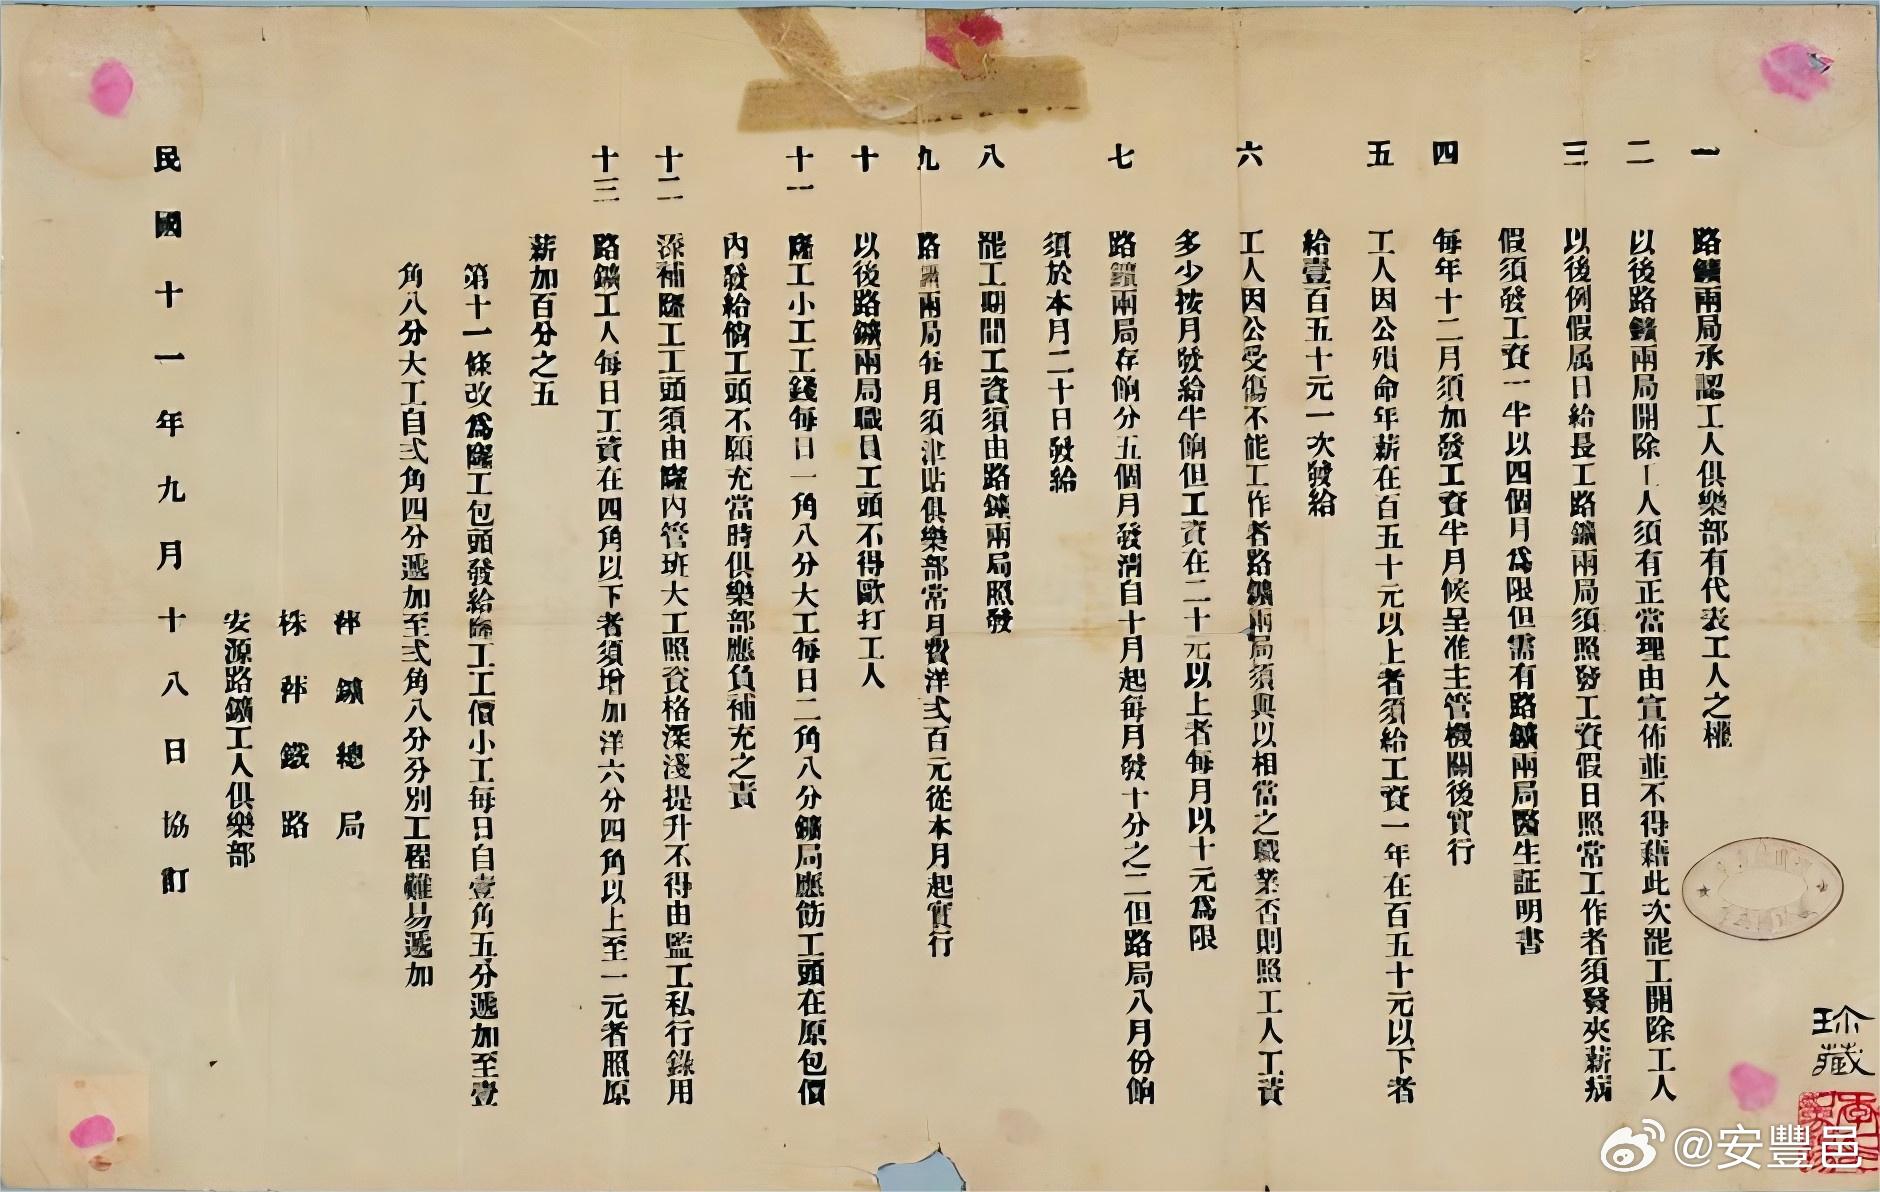 一　路鑛兩局承認工人俱樂部有代表工人之權
二　以後路鑛兩局開除工人須有正當理由宣佈並不得藉此次罷工開除工人
三　以後例假属日給長工路鑛兩局須照發工資假日照常工作者須發夾薪病
假須發工資一半以四個月爲限但需有路鑛兩局醫生証明書
四　每年十二月須加發工資半月候呈准主管機關後實行
五　工人因公殞命年薪在百五十元以上者須給工資一年在百五十元以下者
給壹百五十元一次發給
六　工人因公受傷不能工作者路鑛兩局須與以相當之職業否則照工人工資
多少按月發給半餉但工資在二十元以上者每月以十元爲限
七　路鑛兩局存餉分五個月發淸自十月起每月發十分之二但路局八月份餉
須於本月二十日發給
八　罷工期間工資須由路鑛兩局照發
九　路鑛兩局每月須津貼俱樂部常月費洋弍百元從本月起實行
十　以後路鑛兩局職員工頭不得毆打工人
十一　窿工小工工錢每日一角八分大工每日二角八分鑛局應飭工頭在原包價
內發給倘工頭不願充當時俱樂部應負補充之責
十二　添補窿工工頭須由窿內管班大工照資格深淺提升不得由監工私行錄用
十三　路鑛工人每日工資在四角以下者須增加洋六分四角以上至一元者照原
薪加百分之五
第十一條改爲窿工包頭發給窿工工價小工每日自壹角五分遞加至壹
角八分大工自弍角四分遞加至弍角八分分別工程難易遞加
萍鑛總局
株萍鐵路
安源路鑛工人俱樂部
民國十一年九月十八日協訂
珎藏
@安豐邑